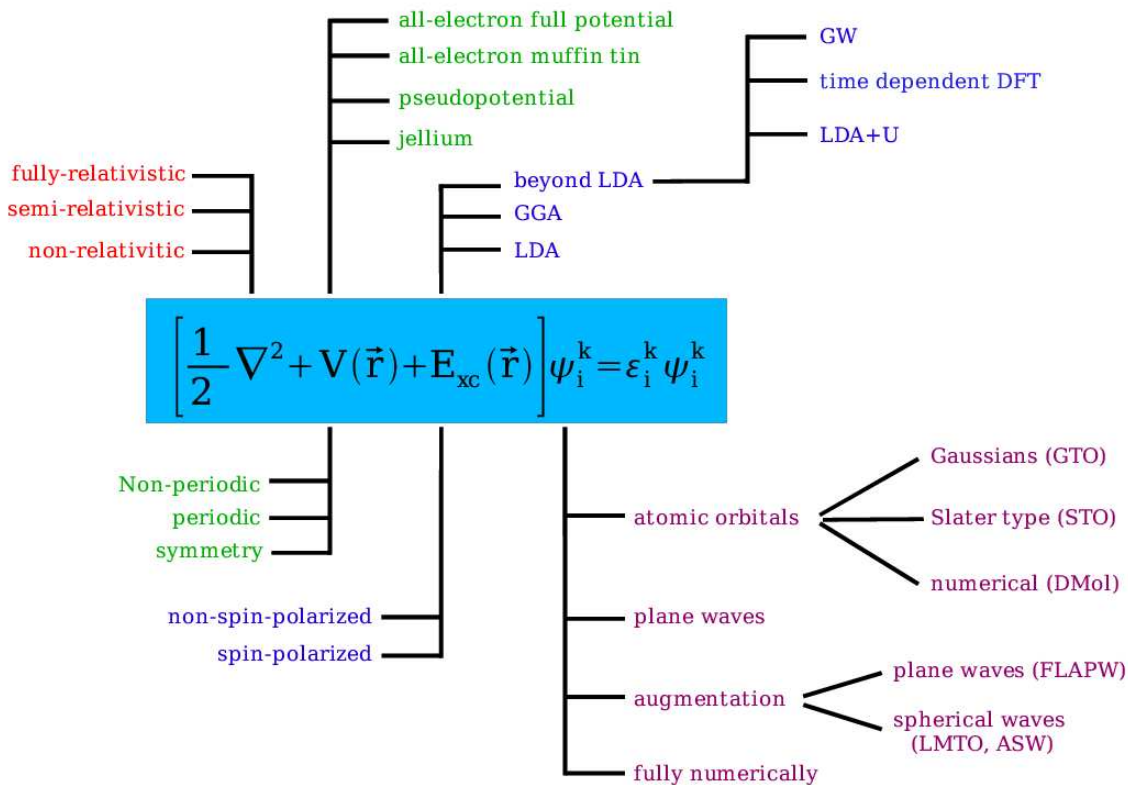 all-electron full potential
all-electron muffin tin
pseudopotential
jellium
GW
time dependent DFT
LDA+U
fully-relativistic
semi-relativistic
non-relativitic
beyond LDA
GGA
LDA
[1/2 ∇² + V(r⃗) + E_xc(r⃗)] ψ_i^k = ε_i^k ψ_i^k
Non-periodic
periodic
symmetry
non-spin-polarized
spin-polarized
atomic orbitals
Gaussians (GTO)
Slater type (STO)
numerical (DMol)
plane waves
augmentation
plane waves (FLAPW)
spherical waves
(LMTO, ASW)
fully numerically